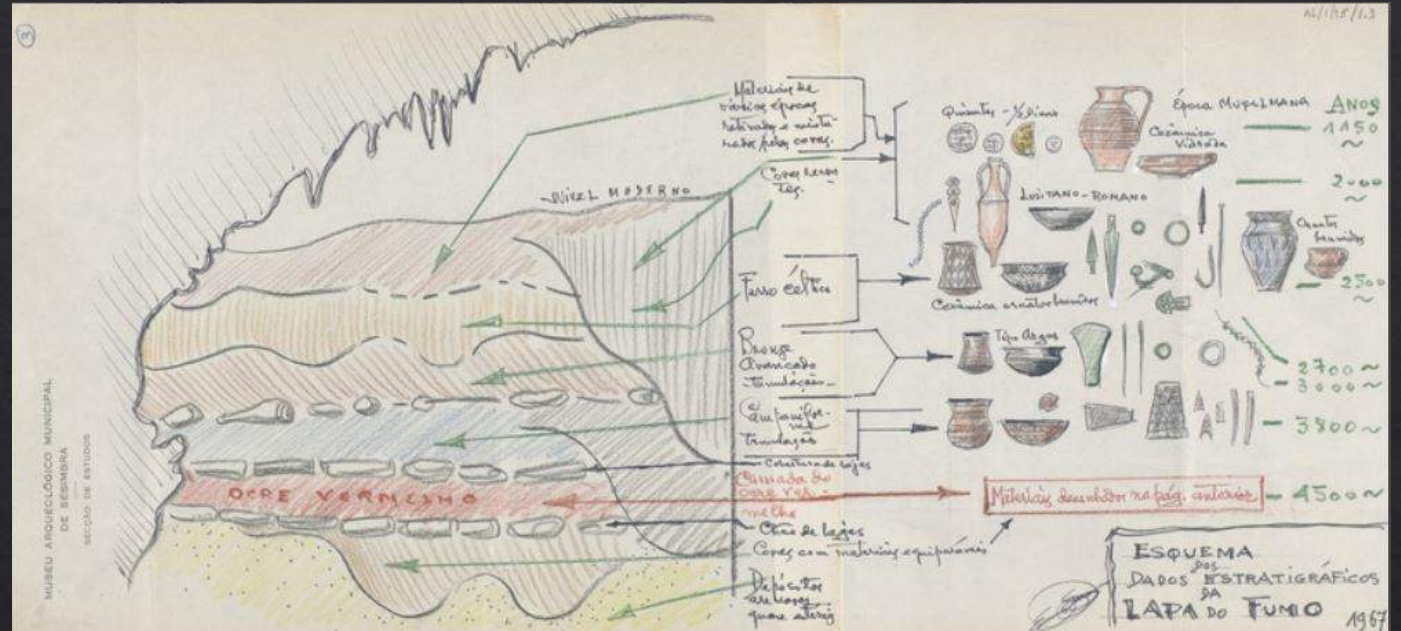 3
MUSEU ARQUEOLÓGICO MUNICIPAL
DE SESIMBRA
SECÇÃO DE ESTUDOS
NIVEL MODERNO
OCRE VERMELHO
Materiais de
várias épocas
retirados e mistu-
rados pelas covas.
Covas recen-
tes.
Ferro Céltico
Bronze
Avançado
Tumulação
Campanifor-
me
Tumulação
Cobertura de lajes
Camada do
ocre ver-
melho
Chão de lajes
Covas com materiais equiparáveis
Depósitos
arenosos
quase estéreis
Quirates - ½ dinar
Época MUÇULMANA
Cerâmica
Vidrada
LUSITANO-ROMANO
Cerâmica ornatos brunidos
Ornatos
brunidos
Tipo Argar
Materiais desenhados na pág. anterior
ANOS
1150
~
2000
~
2500
~
2700 ~
3000 ~
3800 ~
4500 ~
ESQUEMA
DOS
DADOS ESTRATIGRÁFICOS
DA
LAPA DO FUMO
1967